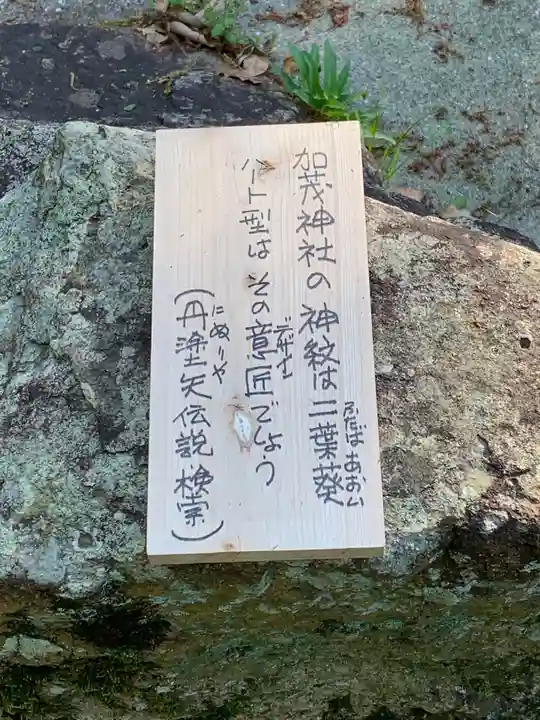 加茂神社の神紋は二葉葵
ふたば あおい
ハート型は その意匠でしょう
デザイン
(丹塗矢伝説 検索)
にぬりや